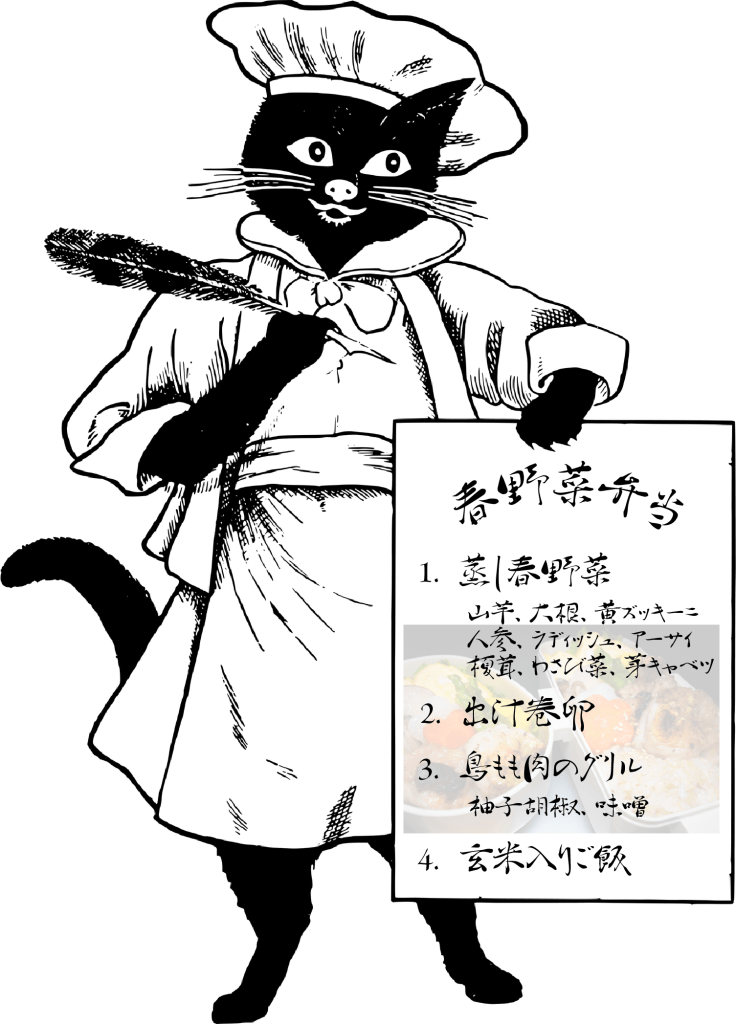 春野菜弁当
1. 蒸し春野菜
山芋、大根、黄ズッキーニ
人参、ラディッシュ、アーサイ
榎茸、わさび菜、芽キャベツ
2. 出汁巻卵
3. 鳥もも肉のグリル
柚子胡椒、味噌
4. 玄米入りご飯